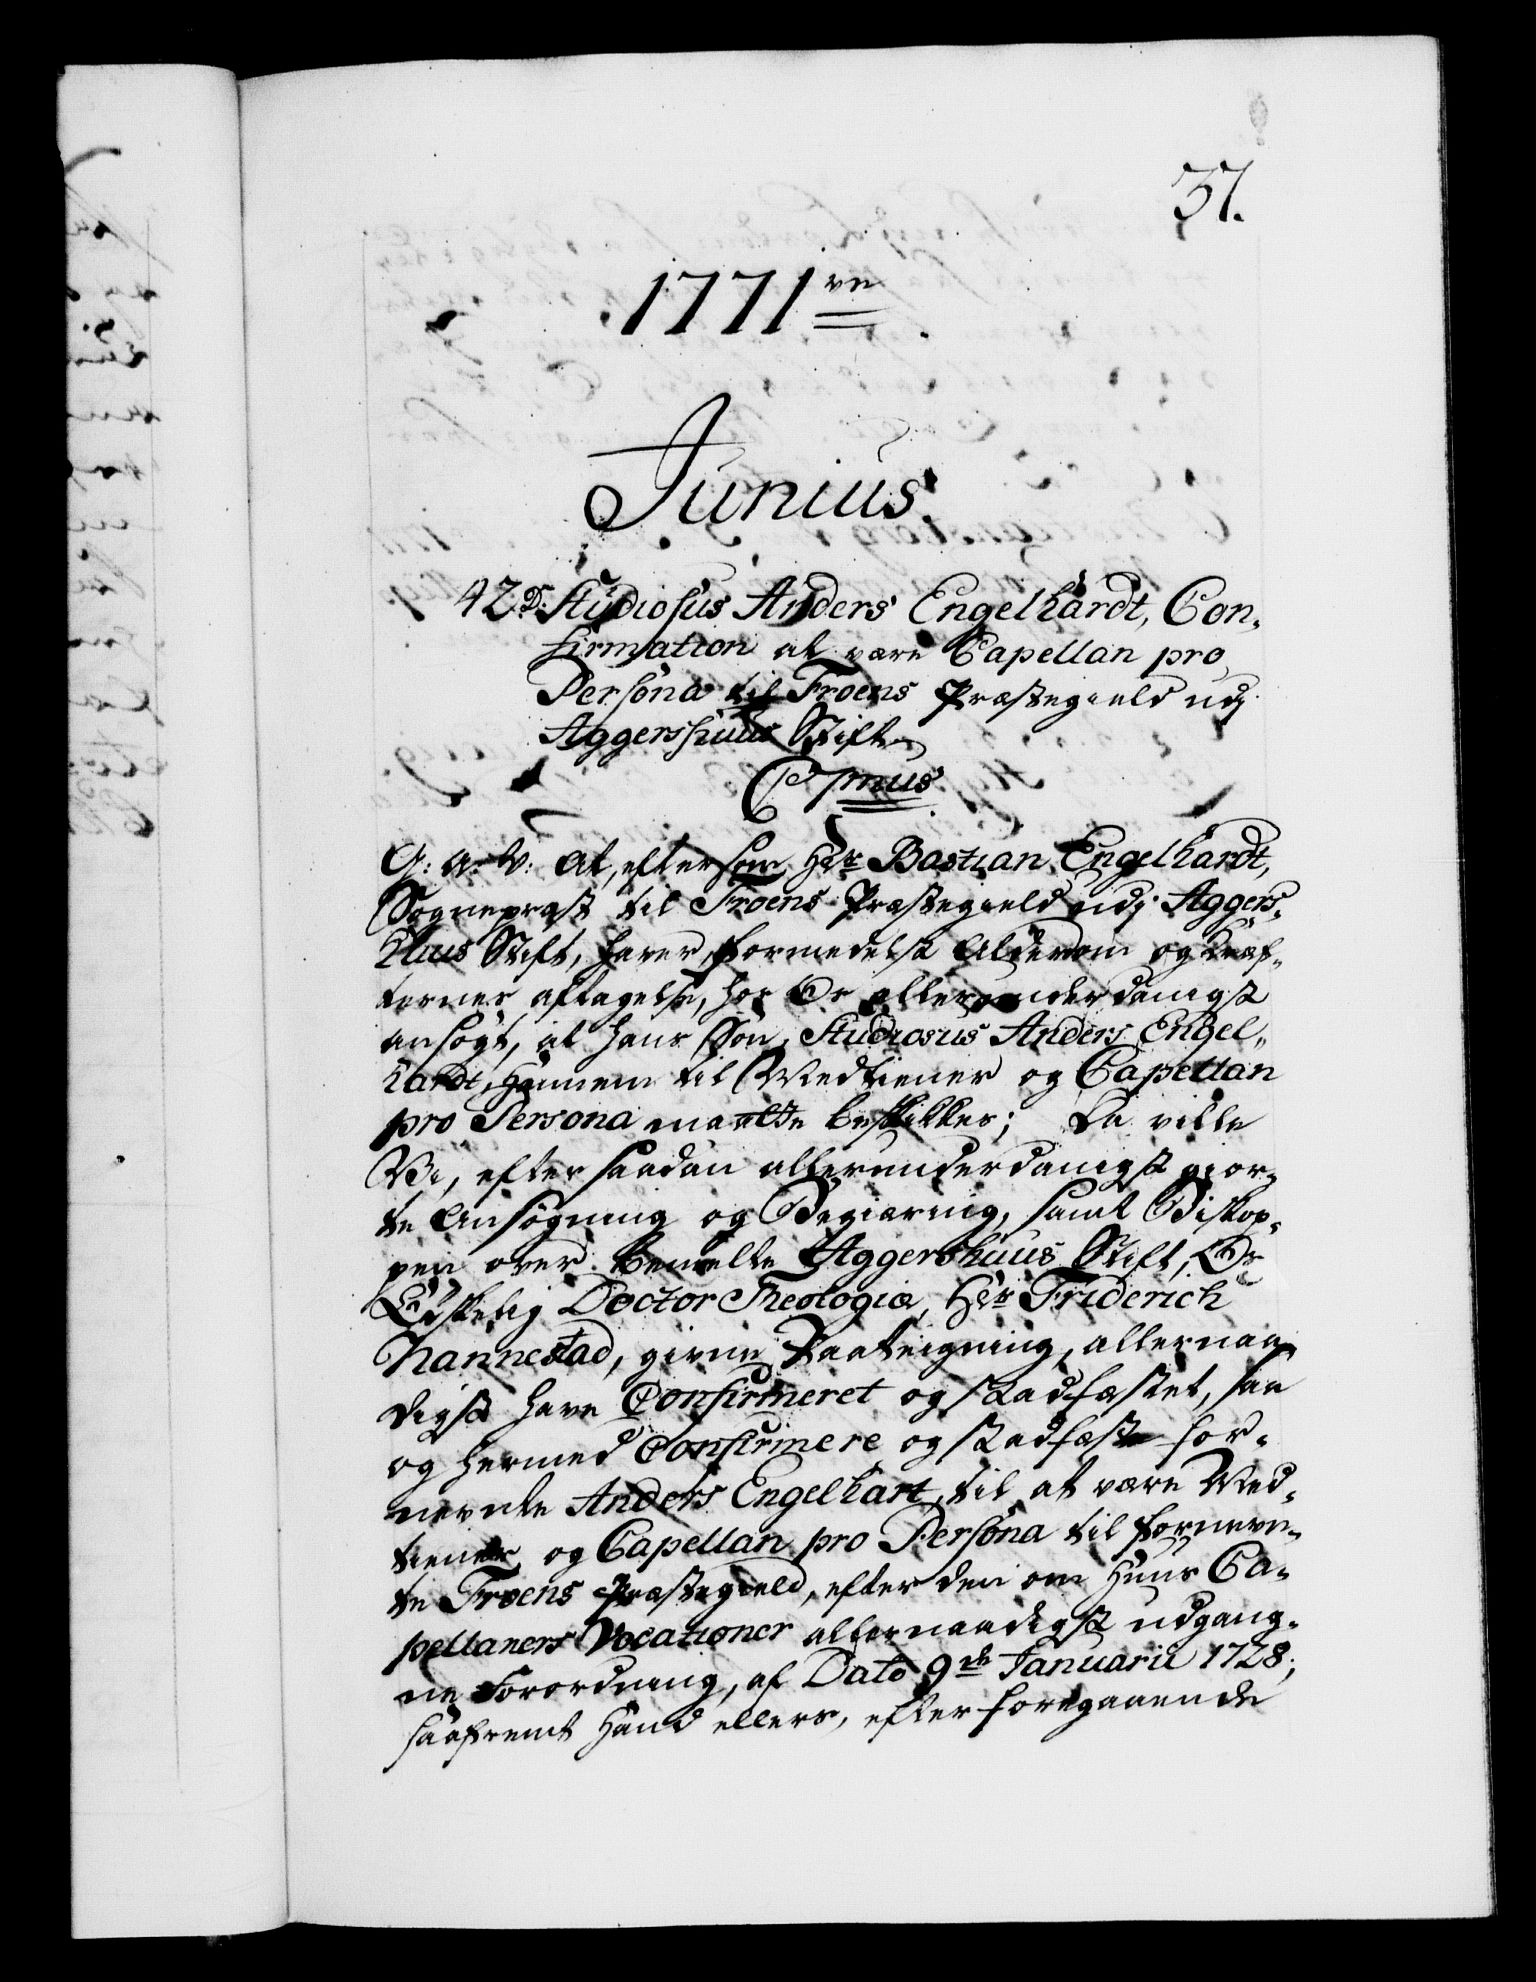 37.
1771ve
Junius.
42. D: Studiosus Anders Engelhardt, Con-
firmation at være Capellan pro
Persona til Froens Præstegield udj
Aggershuus Stift.
C 7mus
G: A: V: At, eftersom Hr: Bastian Engelhardt,
Sognepræst til Froens Præstegield udj Aggers-
huus Stift, haver, formedelst Alderdom og Kræf-
ternes aftagelse, hos Os allerunderdanigst
ansøgt, at hans Søn, Studiosus Anders Engel-
hardt, Hannem til Medtiener og Capellan
pro Persona maatte beskikkes; Da ville
Vi, efter saadan allerunderdanigst gior-
te Ansøgning og Begiæring, samt Biskop-
pen over bemelte Aggershuus Stift, Os
Elskelig Doctor Theologiæ, Hr: Friderich
Nannestad, givne Paateigning, allernaa-
digst have Confirmeret og stadfæstet, saa
og hermed Confirmere og stadfæste for-
nevnte Anders Engelhart, til at være Med-
tiener og Capellan pro Persona til fornevn-
te Froens Præstegield, efter den om Huus Ca-
pellaners Vocationer allernaadigst udgang-
ne Forordning, af Dato 9de Januarii 1728;
saafremt Hand ellers, efter foregaaende